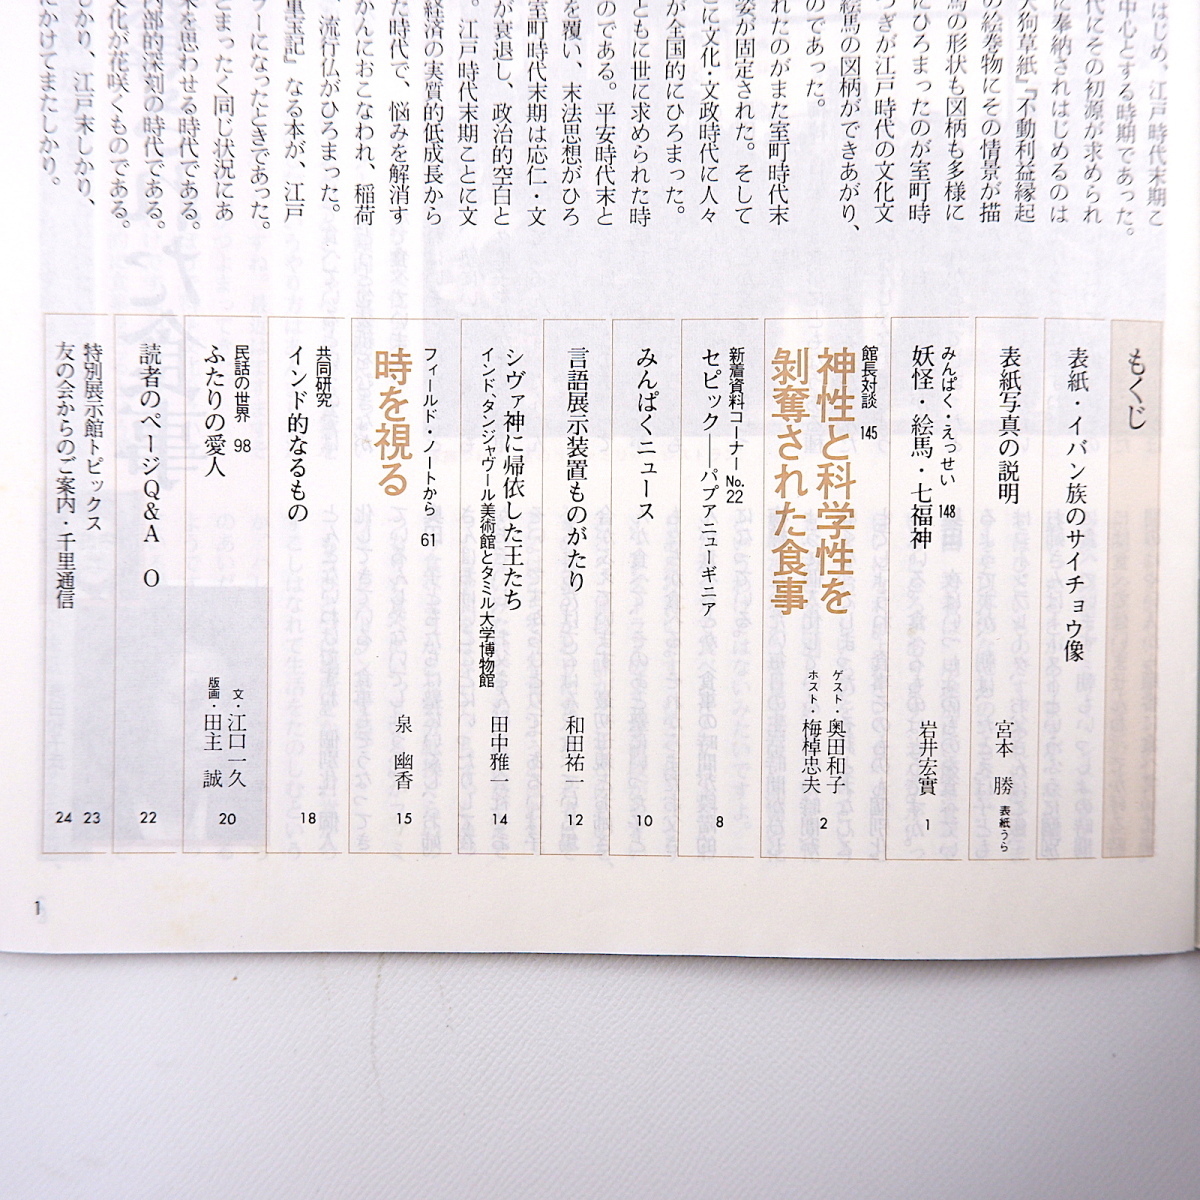 はじめ、江戸時代末期こ
中心とする時期であった。
代にその初源が求められ
に奉納されはじめるのは
天狗草紙』『不動利益縁起
の絵巻物にその情景が描
にひろまったのが室町時
馬の形状も図柄も多様に
つぎが江戸時代の文化文
絵馬の図柄ができあがり、
のであった。
れたのがまた室町時代末
姿が固定された。そして
に文化・文政時代に人々
が全国的にひろまった。
ともに世に求められた時
のである。平安時代末と
を覆い、末法思想がひろ
室町時代末期は応仁・文
が衰退し、政治的空白と
。江戸時代末期ことに文
経済の実質的低成長から
た時代で、悩みを解消す
かんにおこなわれ、稲荷
、流行仏がひろまった。
重宝記』なる本が、江戸
ブームになったときであった。
とまったく同じ状況にあ
来を思わせる時代である。
内部的深刻の時代である。
文化が花咲くものである。
しかり、江戸末しかり、
にかけてまたしかり。
もくじ
表紙・イバン族のサイチョウ像
表紙写真の説明 宮本 勝 表紙うら
みんぱく・えっせい 148
妖怪・絵馬・七福神 岩井宏實 1
館長対談 145
神性と科学性を
剝奪された食事
ゲスト・奥田和子
ホスト・梅棹忠夫 2
新着資料コーナー No.22
セピック——パプアニューギニア 8
みんぱくニュース 10
言語展示装置ものがたり 和田祐一 12
シヴァ神に帰依した王たち
インド、タンジャヴール美術館とタミル大学博物館 田中雅一 14
フィールド・ノートから 61
時を視る 泉 幽香 15
共同研究
インド的なるもの 18
民話の世界 98
ふたりの愛人
文・江口一久
版画・田主 誠 20
読者のページQ&A O 22
特別展示館トピックス 23
友の会からのご案内・千里通信 24
1